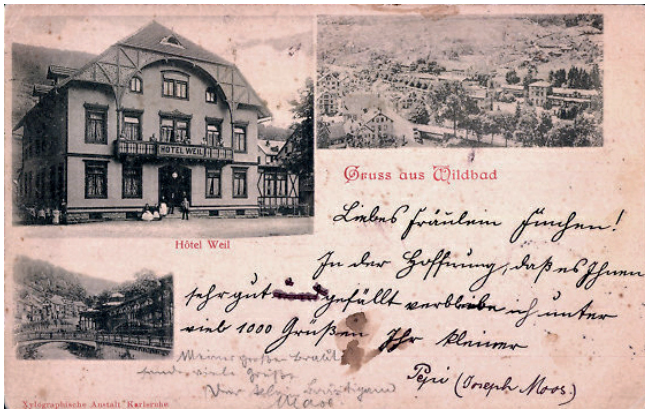 HÔTEL WEIL
Gruss aus Wildbad
Hôtel Weil
Liebes Fräulein Finchen!
In der Hoffnung, daß es Ihnen
sehr gut gefällt verbleibe ich unter
viel 1000 Grüßen Ihr kleiner
Pepi (Joseph Moos.)
Meiner große Braut
sende viele Grüße
Moos
Xylographische Anstalt Karlsruhe